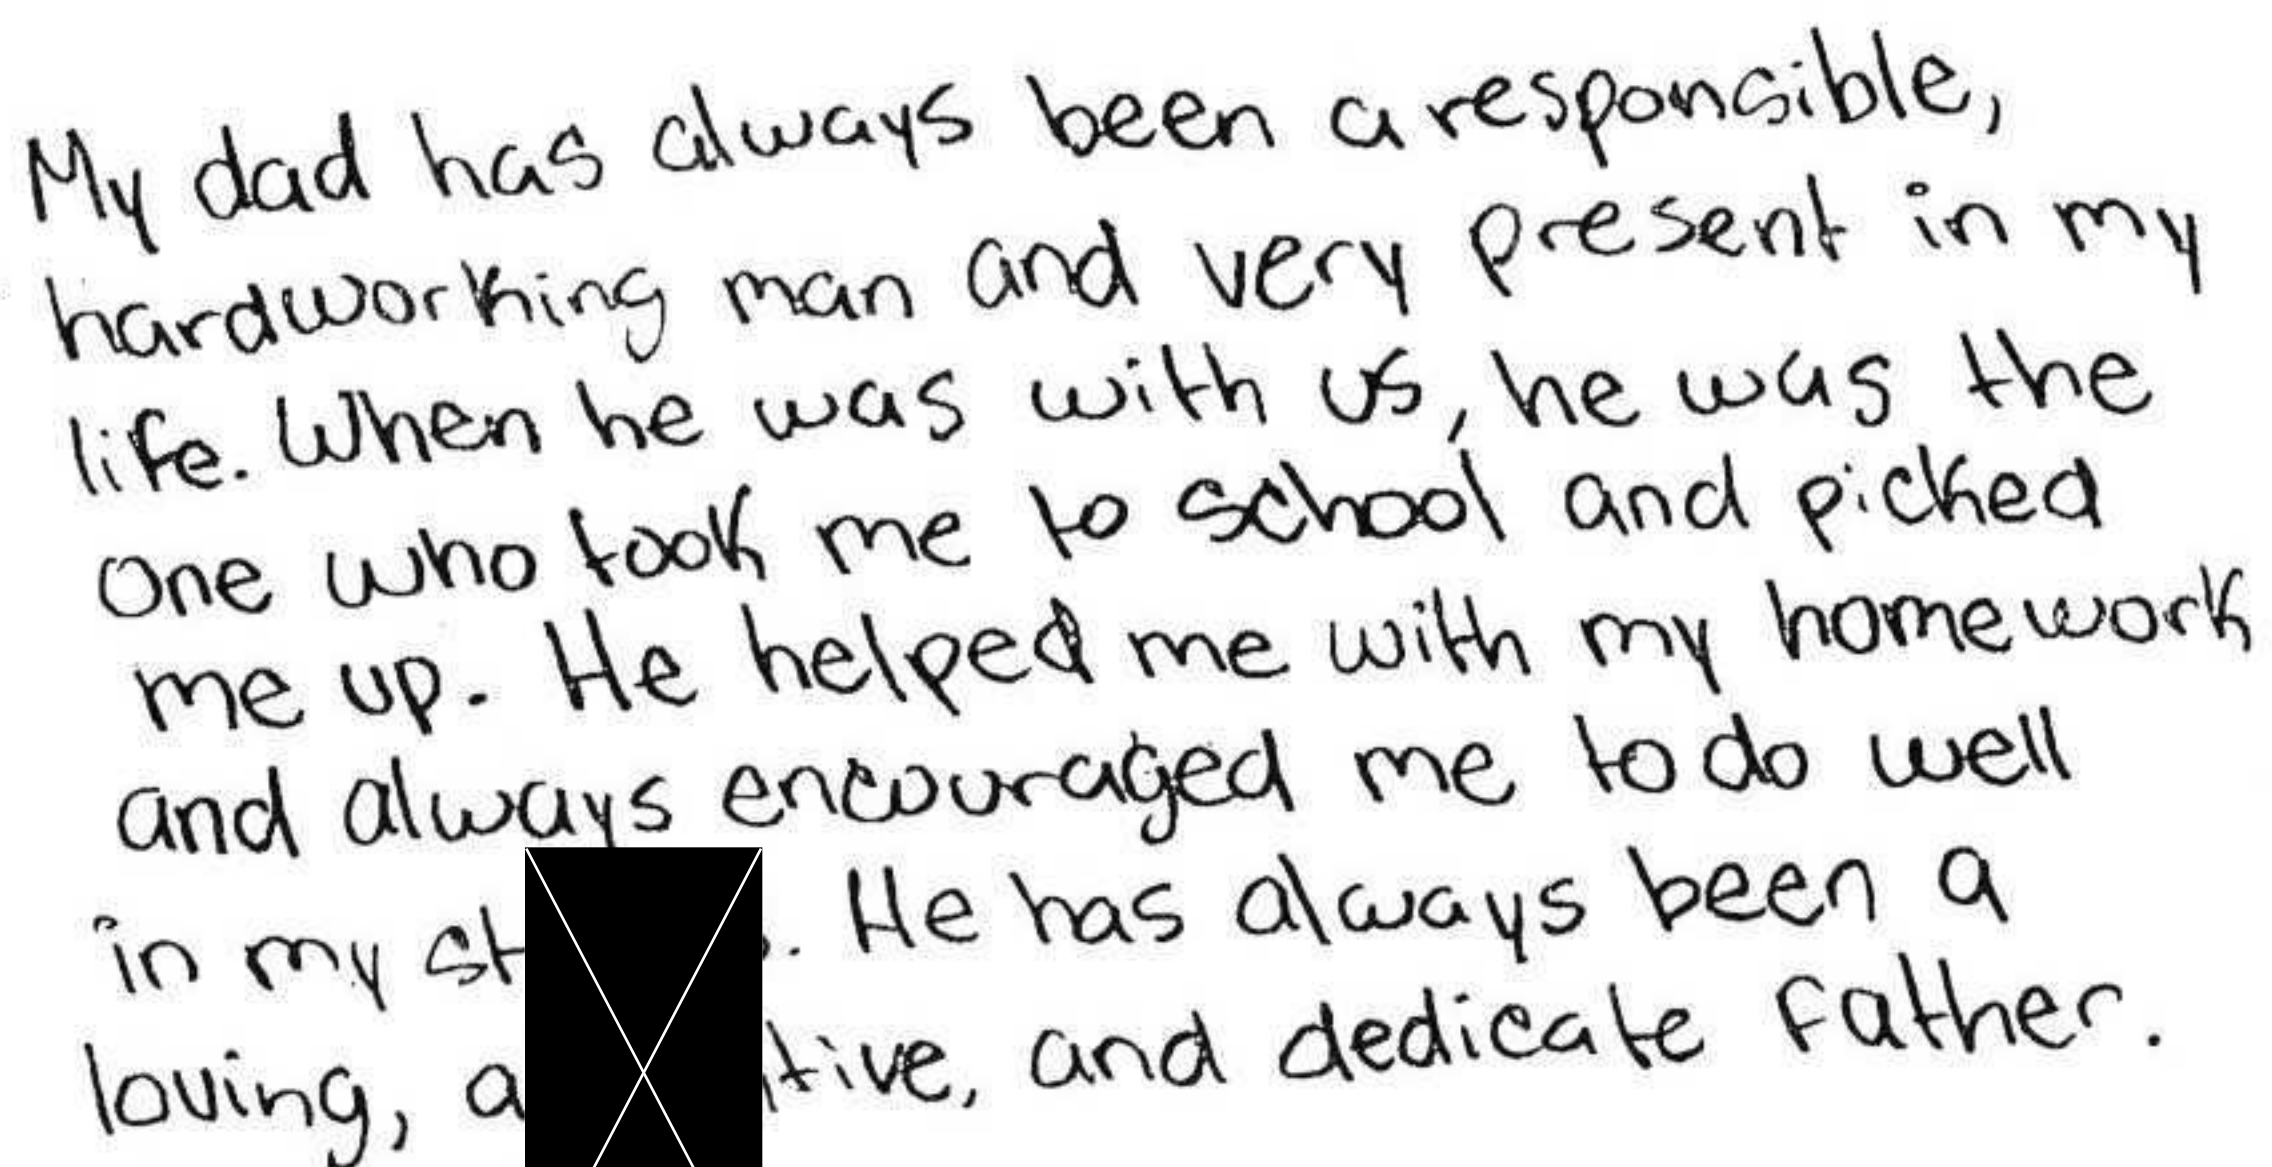 My dad has always been a responsible,
hardworking man and very present in my
life. When he was with us, he was the
one who took me to school and picked
me up. He helped me with my homework
and always encouraged me to do well
in my . He has always been a
loving, and dedicate father.